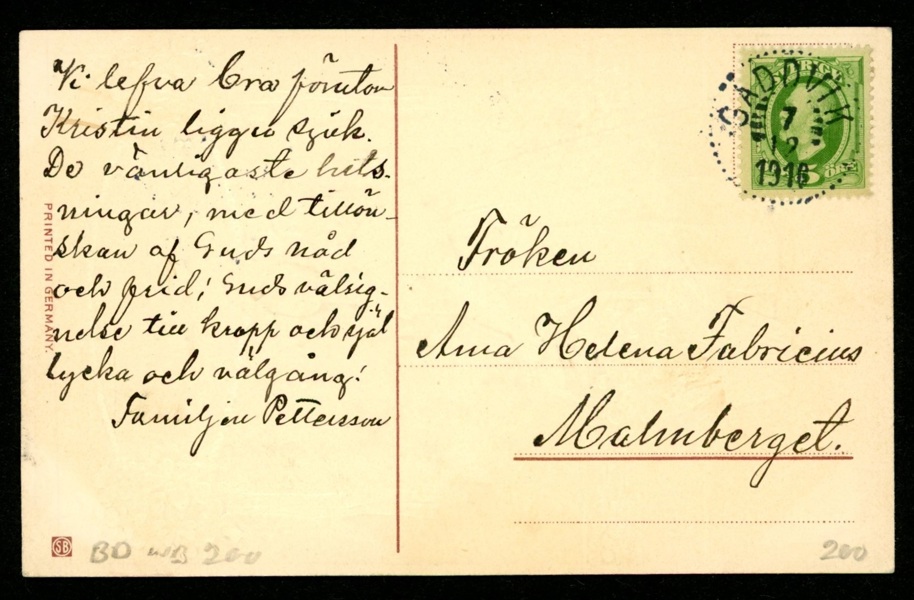 Vi lefva bra förutom
Kristin ligger sjuk.
De vänligaste hels-
ningar, med tillön-
skan af Guds nåd
och frid! Guds välsig-
nelse till kropp och själ
lycka och välgång!
Familjen Pettersson
PRINTED IN GERMANY.
SB
BD 200
SVERIGE
GÄDDVIK
7
12
1916
5 ÖRE
Fröken
Anna Helena Fabricius
Malmberget.
200